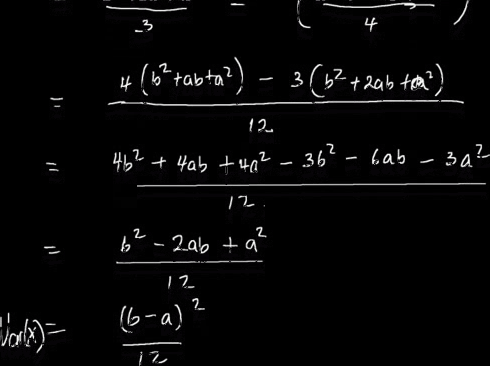 3 = ( 4 )
= 4(b²+ab+a²) - 3(b²+2ab+a²) / 12
= 4b² + 4ab + 4a² - 3b² - 6ab - 3a² / 12.
= b² - 2ab + a² / 12
Var(x) = (b-a)² / 12